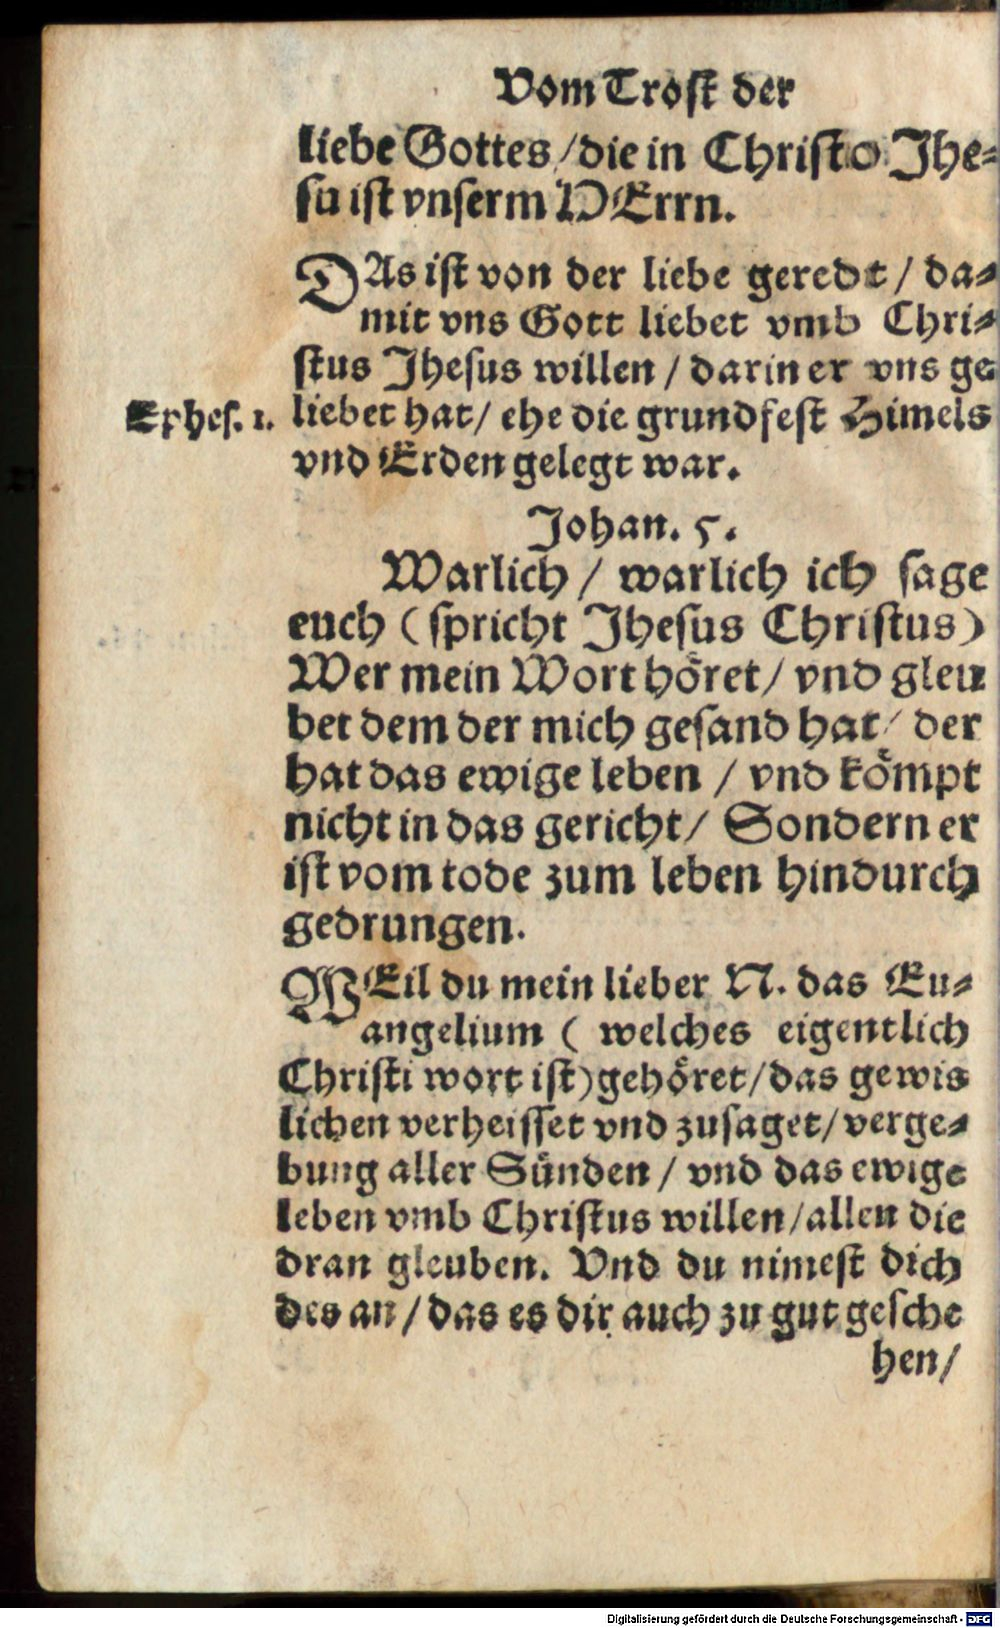 Vom Trost der
liebe Gottes / die in Christo Jhe-
su ist vnserm HErrn.
DAs ist von der liebe geredt / da-
mit vns Gott liebet vmb Chri-
stus Jhesus willen / darin er vns ge
Ephes. 1. liebet hat / ehe die grundfest Himels
vnd Erden gelegt war.
Johan. 5.
Warlich / warlich ich sage
euch ( spricht Jhesus Christus )
Wer mein Wort höret / vnd gleu
bet dem der mich gesand hat / der
hat das ewige leben / vnd kömpt
nicht in das gericht / Sondern er
ist vom tode zum leben hindurch
gedrungen.
WEil du mein lieber N. das Eu-
angelium ( welches eigentlich
Christi wort ist ) gehöret / das gewis
lichen verheisset vnd zusaget / verge-
bung aller Sünden / vnd das ewige
leben vmb Christus willen / allen die
dran gleuben. Vnd du nimest dich
des an / das es dir auch zu gut gesche
hen /
Digitalisierung gefördert durch die Deutsche Forschungsgemeinschaft - DFG